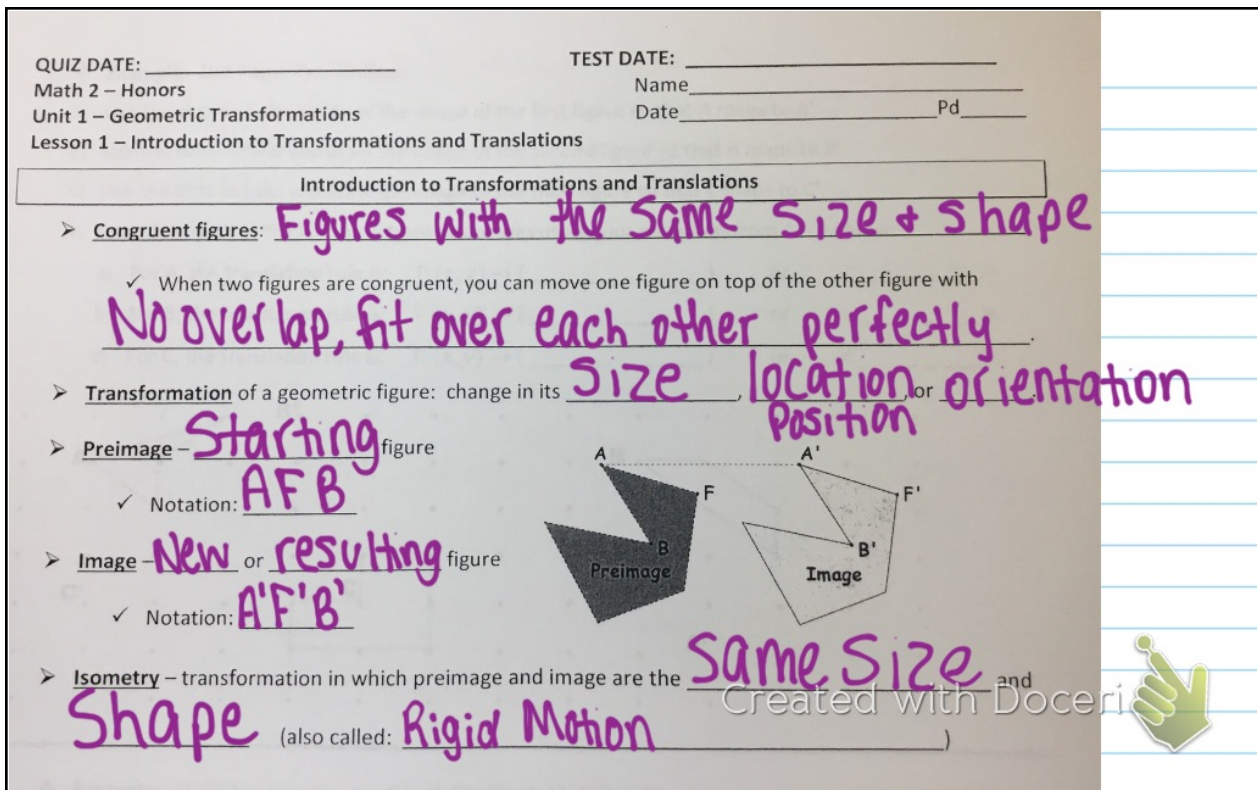 QUIZ DATE: ____________ TEST DATE: ____________
Math 2 – Honors Name____________
Unit 1 – Geometric Transformations Date____________Pd______
Lesson 1 – Introduction to Transformations and Translations
Introduction to Transformations and Translations
➢ Congruent figures: Figures with the Same Size & Shape
✓ When two figures are congruent, you can move one figure on top of the other figure with
No overlap, fit over each other perfectly.
➢ Transformation of a geometric figure: change in its Size, location, or orientation.
Position
➢ Preimage – Starting figure
✓ Notation: AFB
➢ Image – New or resulting figure
✓ Notation: A'F'B'
A A'
F F'
B B'
Preimage Image
➢ Isometry – transformation in which preimage and image are the Same Size and
Shape (also called: Rigid Motion)
Created with Doceri